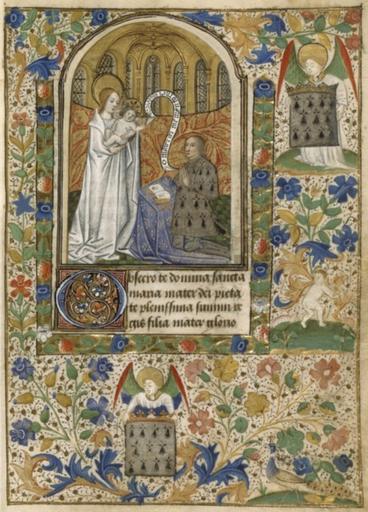 obsecro te domina sancta
maria mater dei pieta
te plenissima summi re
gis filia mater glorio